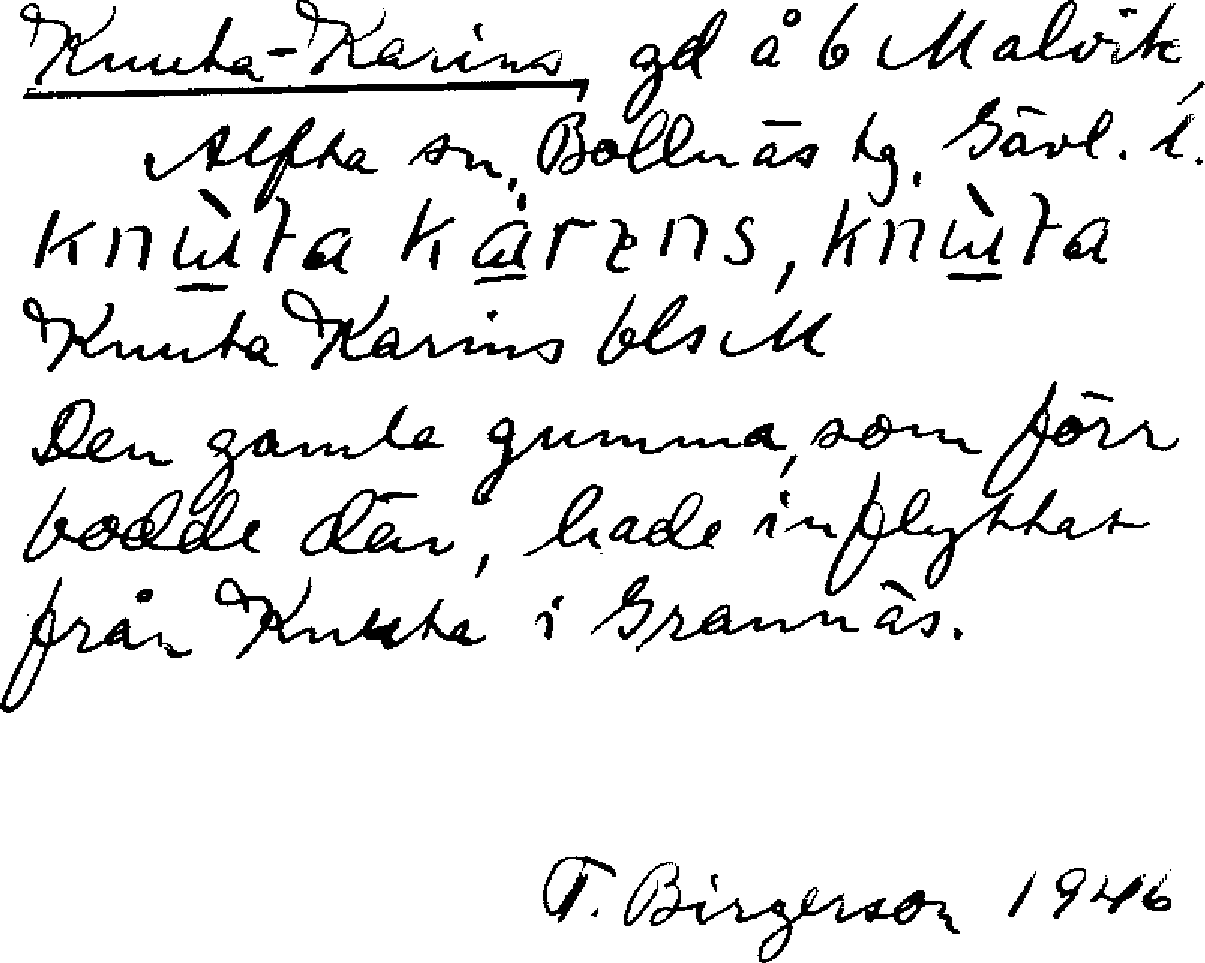 Knuta-Karins, gd å 6 Malvik,
Alfta sn, Bollnäs tg, Gävl. l.
Knuta Karins bls M
Den gamla gumma, som förr
bodde där, hade inflyttat
från Knuta i Grannäs.
T. Birgerson 1946